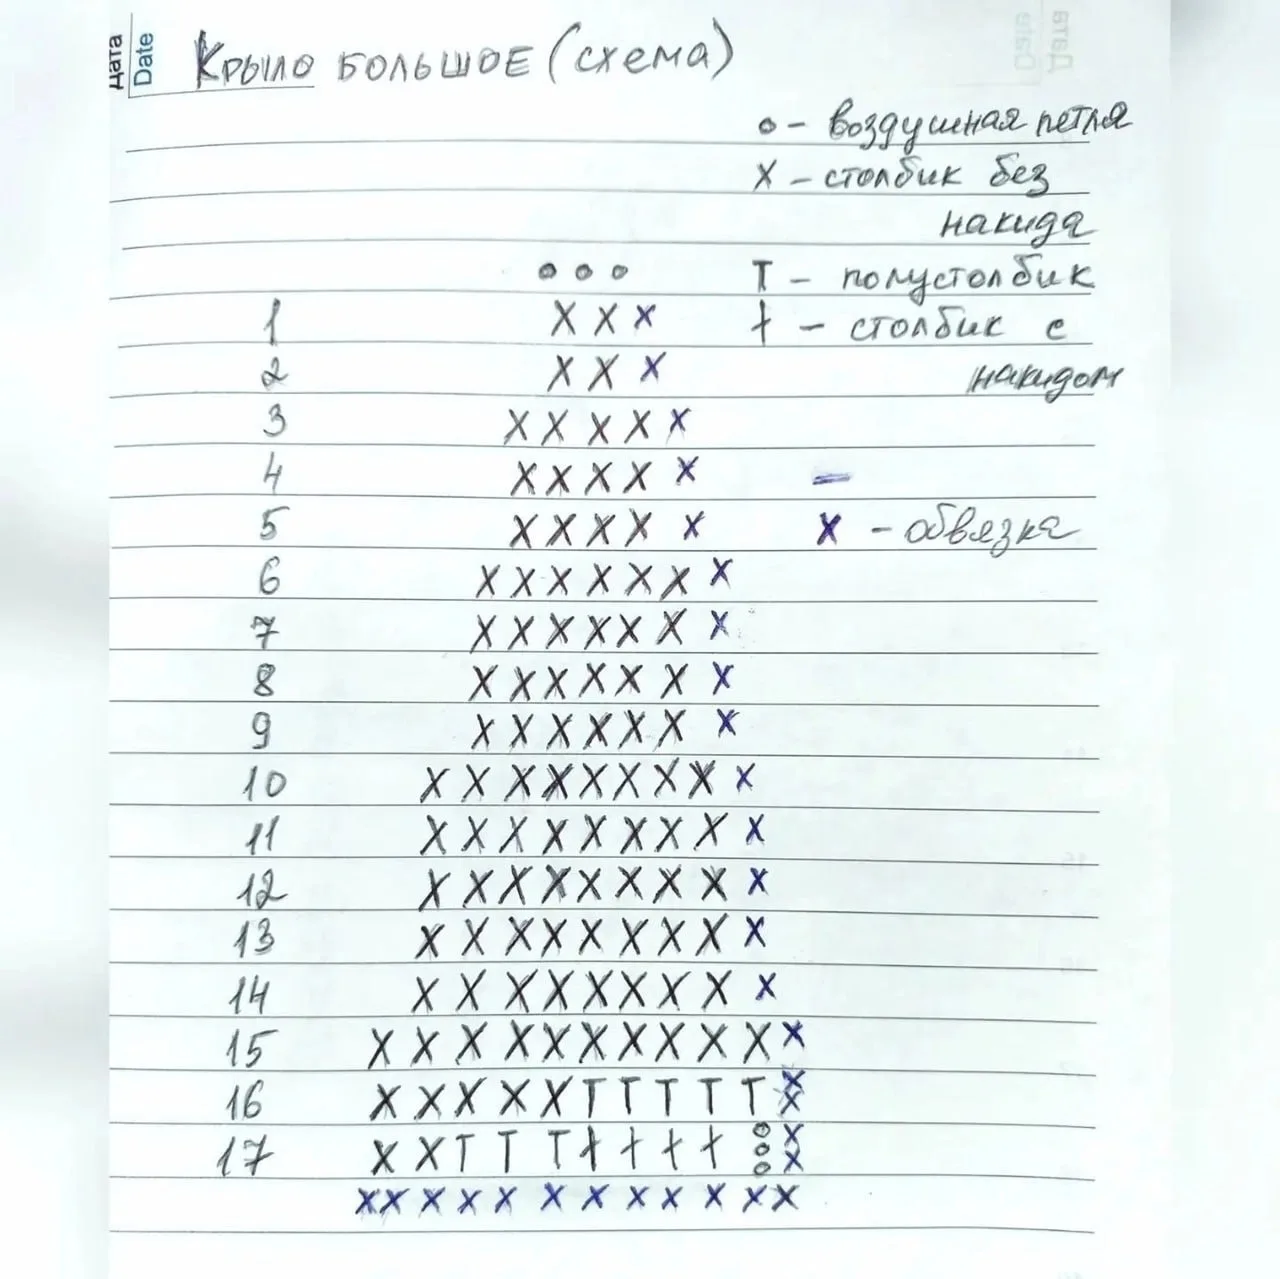 Дата
Date
Крыло большое (схема)
о - воздушная петля
х - столбик без
накида
о о о
Т - полустолбик
1 х х х
† - столбик с
2 х х х
накидом
3 х х х х х
4 х х х х х
5 х х х х х
х - обвязка
6 х х х х х х х
7 х х х х х х х
8 х х х х х х х
9 х х х х х х х
10 х х х х х х х х х
11 х х х х х х х х х
12 х х х х х х х х х
13 х х х х х х х х х
14 х х х х х х х х х
15 х х х х х х х х х х х
16 х х х х х Т Т Т Т Т х х
17 х х Т Т Т † † † † о о о х х
х х х х х х х х х х х х